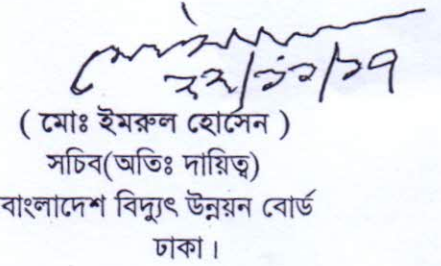 ২২/১২/১৭
( মোঃ ইমরুল হোসেন )
সচিব(অতিঃ দায়িত্ব)
বাংলাদেশ বিদ্যুৎ উন্নয়ন বোর্ড
ঢাকা।